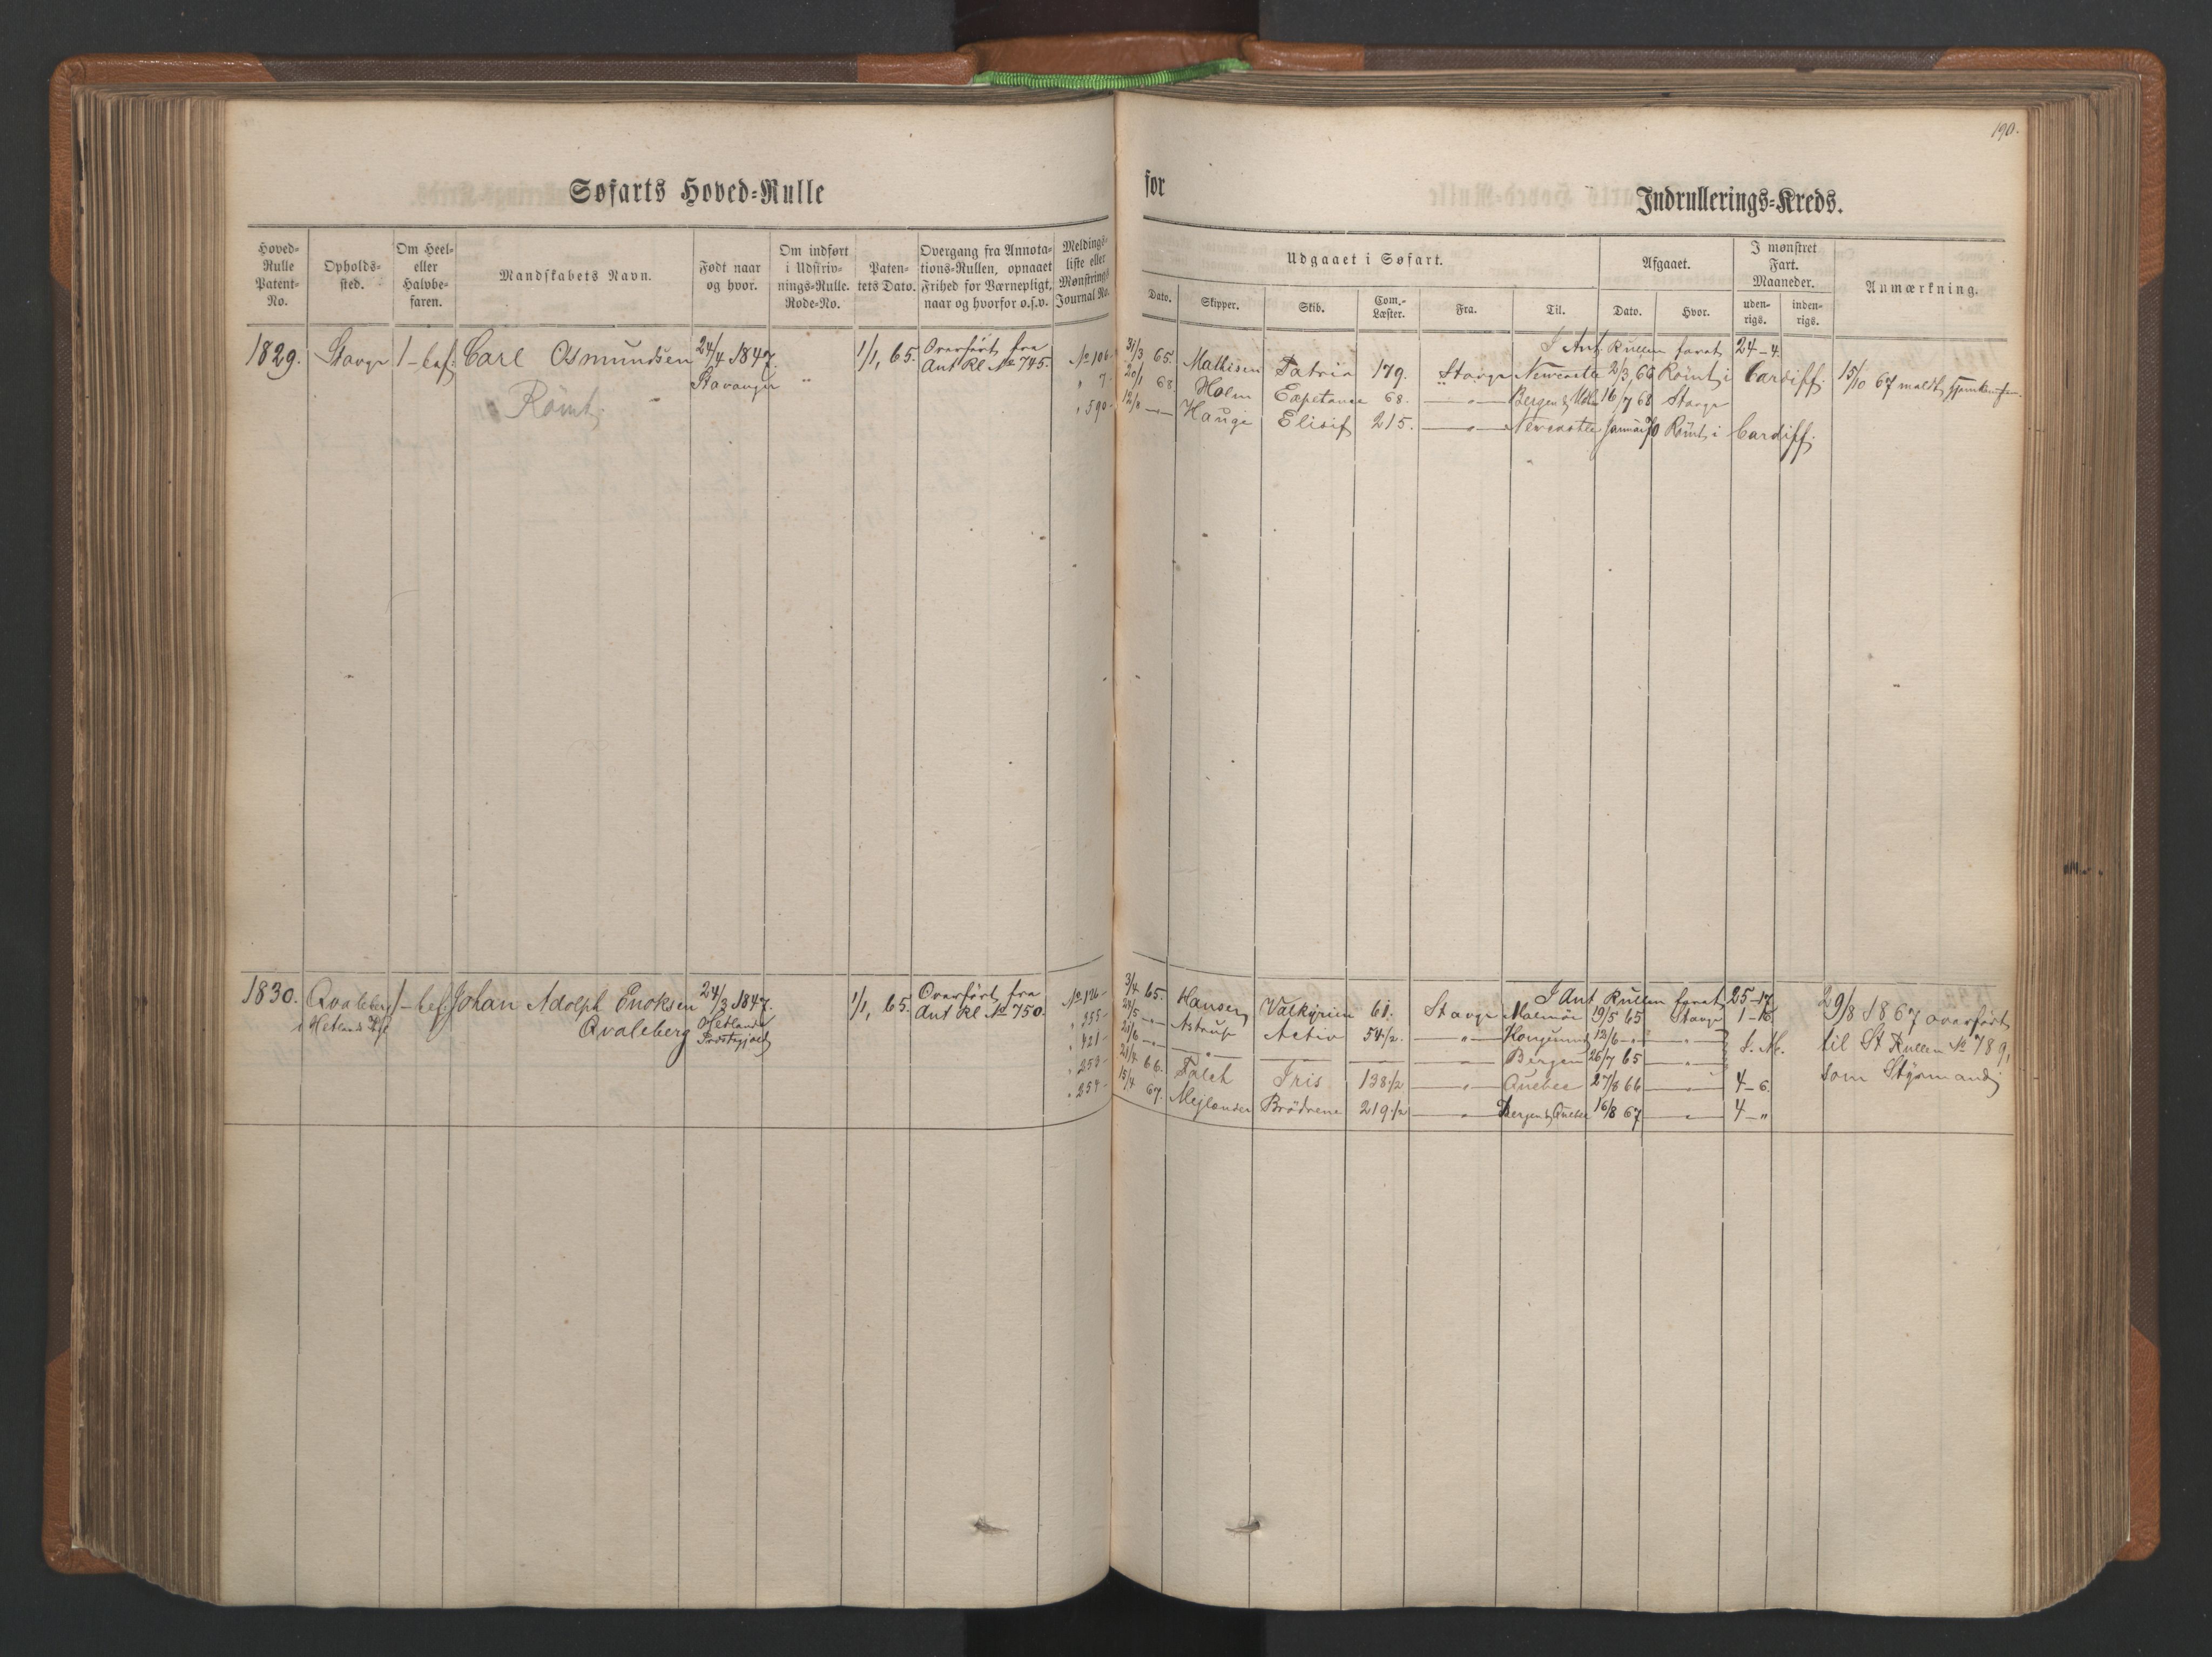 190.
Søfarts Hoved-Rulle
for
Indrullerings-Kreds.
Hoved-Rulle Patent-No.
Opholds-sted.
Om Heel- eller Halvbe-faren.
Mandskabets Navn.
Født naar og hvor.
Om indført i Udskriv-nings-Rulle. Rode-No.
Paten-tets Dato.
Overgang fra Annota-tions-Rullen, opnaaet Frihed for Værnepligt, naar og hvorfor o.s.v.
Meldings-liste eller Mønstrings Journal No.
Udgaaet i Søfart.
Dato.
Skipper.
Skib.
Com.-Læster.
Fra.
Til.
Afgaaet.
Dato.
Hvor.
I mønstret Fart. Maaneder.
uden-rigs.
inden-rigs.
Anmærkning.
1829. Stavgr 1-bef. Carl Osmundsen 24/4 1847. Stavanger " 1/1, 65. Overført fra Ant Rl No 745.
Römt
I Ant Rullen faret 24-4.
No 106- 31/3 65. Mathisen Patria 179. Stavgr Newcastle 2/3, 66 Römt i Cardiff. 15/10 67 meldt hjemkommen.
" 7- 20/1 68. Holm Expetance 68. -"- Bergen & 16/7 68 Stavgr
" 590- 12/8 -"- Hauge Elisif 215. -"- Newcastle Januar 70 Römt i Cardiff.
1830. Qvaleberg i Hetlands 1-bef. Johan Adolph Enoksen Qvaleberg 24/3 1847. Hetlands Præstegjæld 1/1, 65. Overført fra Ant Rl No 750.
I Ant Rullen faret 25-17
No 126- 3/4 65. Hansen Valkyrien 61. Stavgr Malmöe 19/5 65 Stavgr 1-16.
" 355- 24/5 -"- Astrup Activ 54 1/2. -"- 12/6 -"- -"-
" 421- 21/6 -"- -"- Bergen 26/7 65 -"-
" 253- 21/4 66. Falch Iris 138 1/2 -"- Quebec 27/8 66 -"- 4-6.
" 254- 15/4 67. Mejlænder Brödrene 219 1/2 -"- Bergen & Quebec 16/8 67 -"- 4-"
29/8 1867 overført
til St Rullen No 789,
som Styrmand